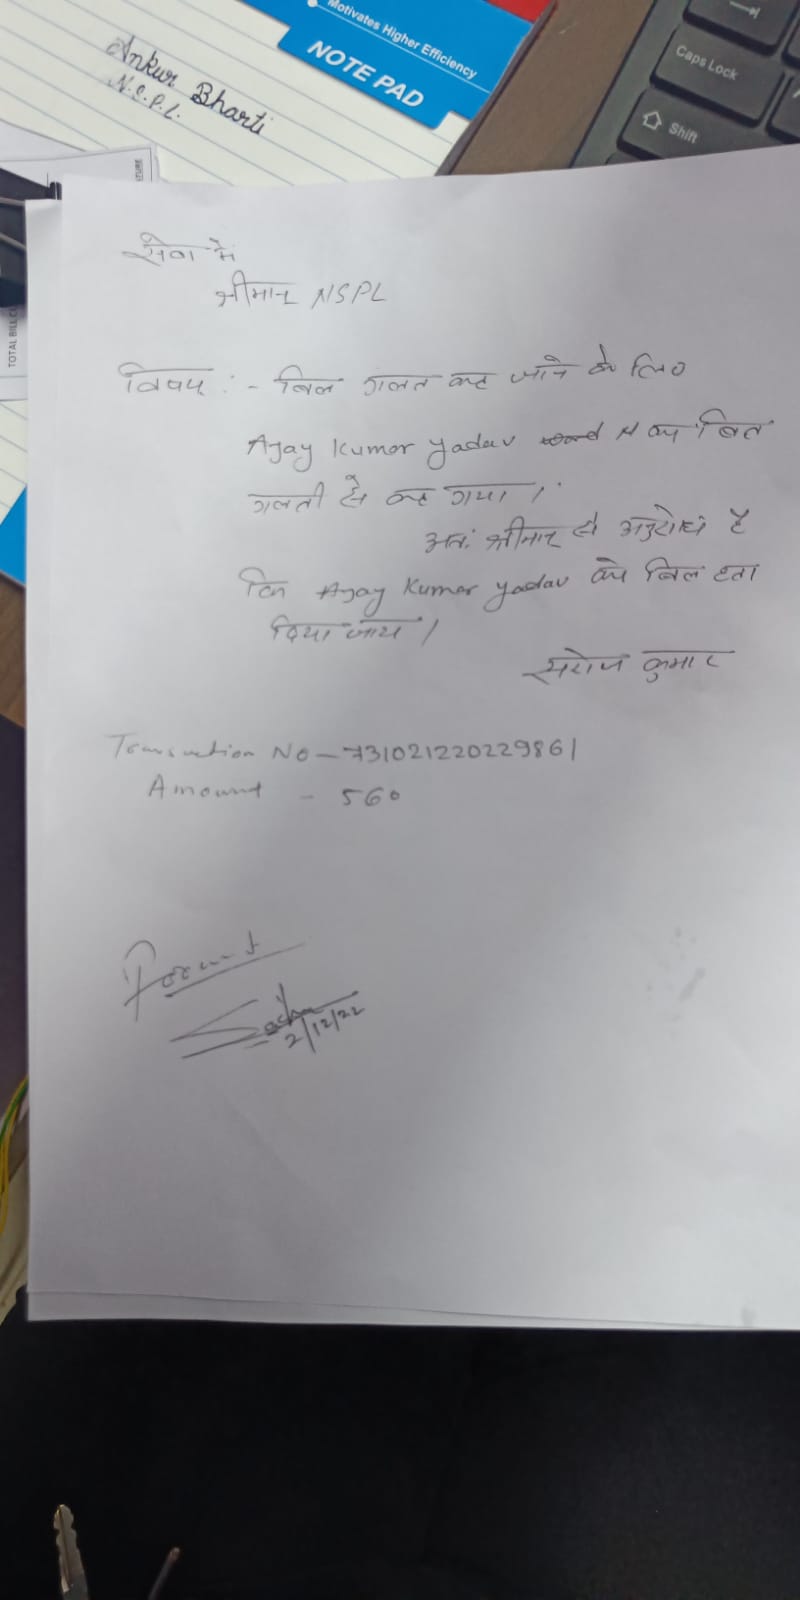 Motivates Higher Efficiency
NOTE PAD
Ankur Bharti
Caps Lock
Shift
TOTAL BILL
सेवा में
श्रीमान NSPL
विषय :- बिल गलत कट जाने के लिए
Ajay Kumar Yadav का बिल
गलती से कट गया।
अतः श्रीमान से अनुरोध है
कि Ajay Kumar Yadav का बिल हटा
दिया जाय।
सरोज कुमार
Transaction No - 731021220229861
Amount - 560
2/12/22